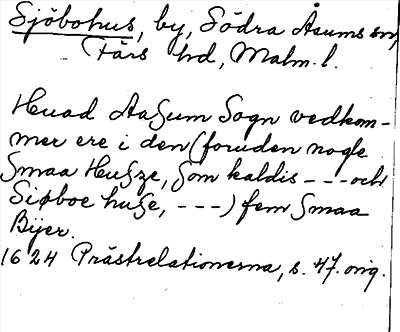 Sjöbohus, by, Södra Åsums sn,
Färs hd, Malm. l.
Huad Aasum Sogn vedkom-
mer ere i den (foruden nogle
Smaa Husze, som kaldis - - - och
Siøboe huse, - - -) fem Smaa
Bijer.
1624 Prästrelationerna, s. 47. orig.